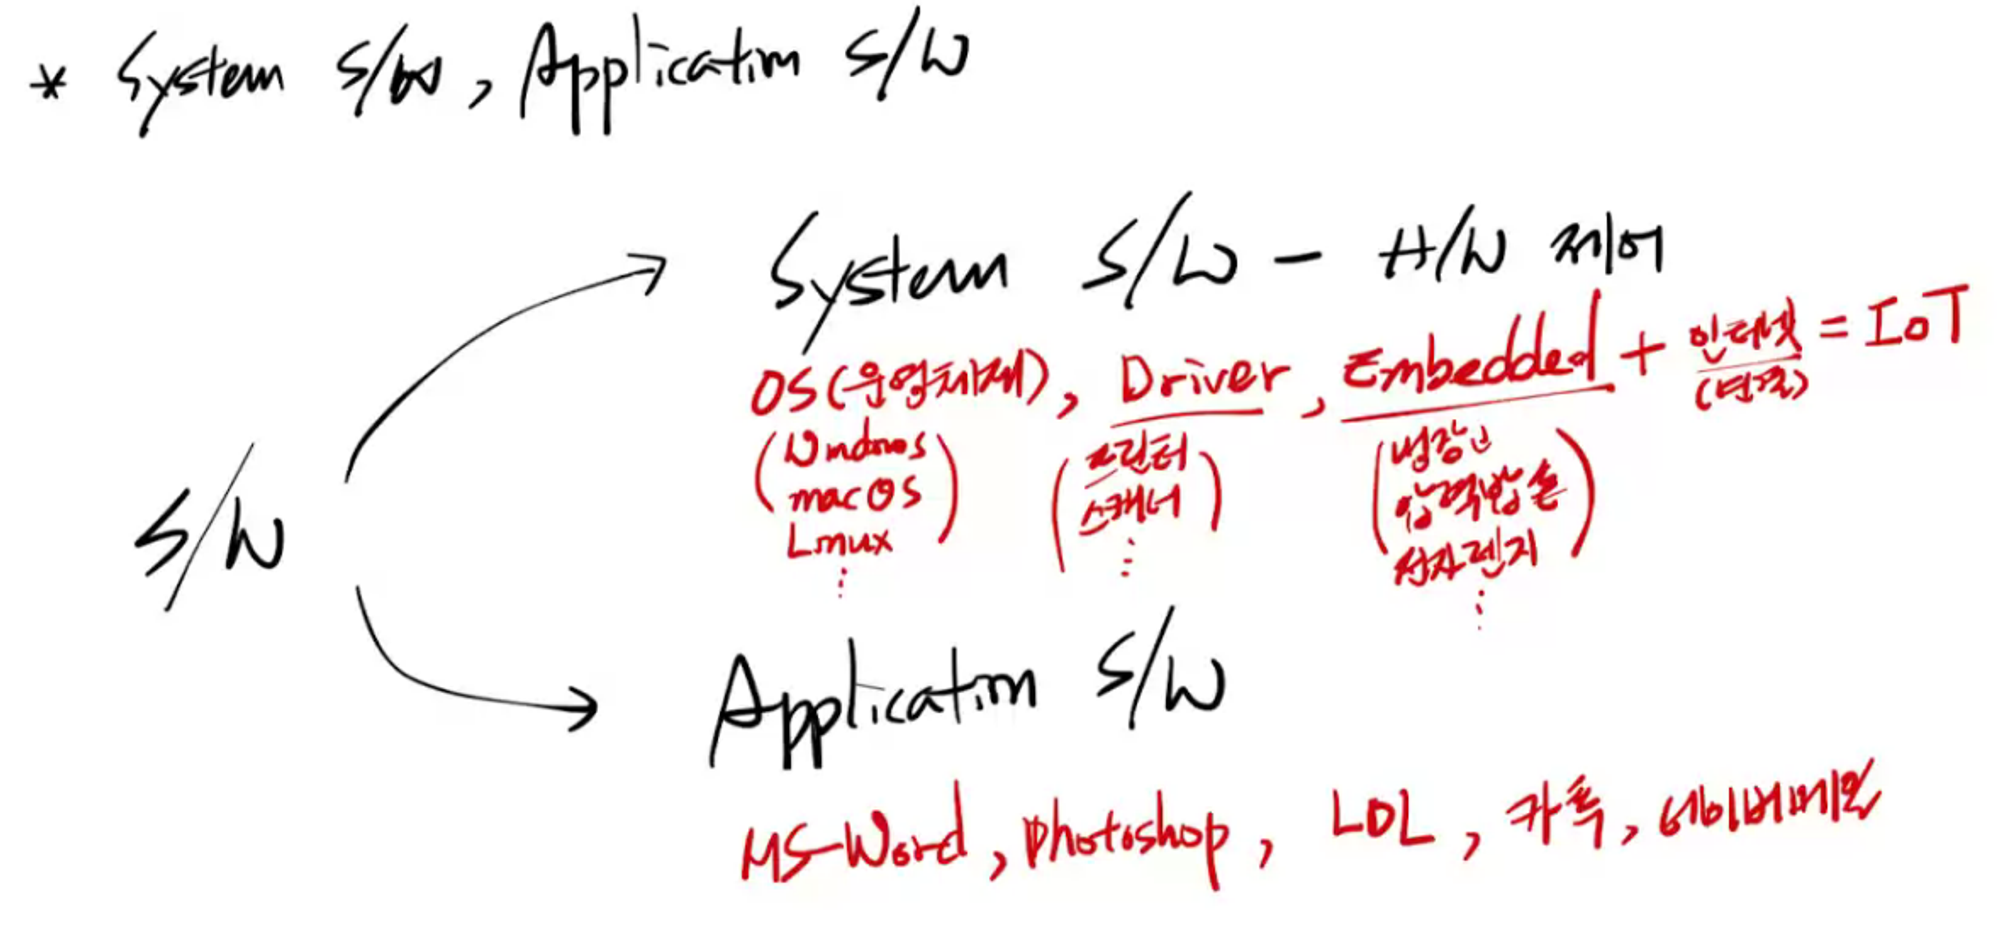 * System S/W, Application S/W
System S/W - H/W 제어
OS(운영체제), Driver, Embedded + 인터넷 = IoT
(연결)
(Windows
macOS
Linux
⋮)
(프린터
스캐너
⋮)
(냉장고
압력밥솥
전자렌지
⋮)
S/W
Application S/W
MS-Word, photoshop, LOL, 카톡, 네이버메일